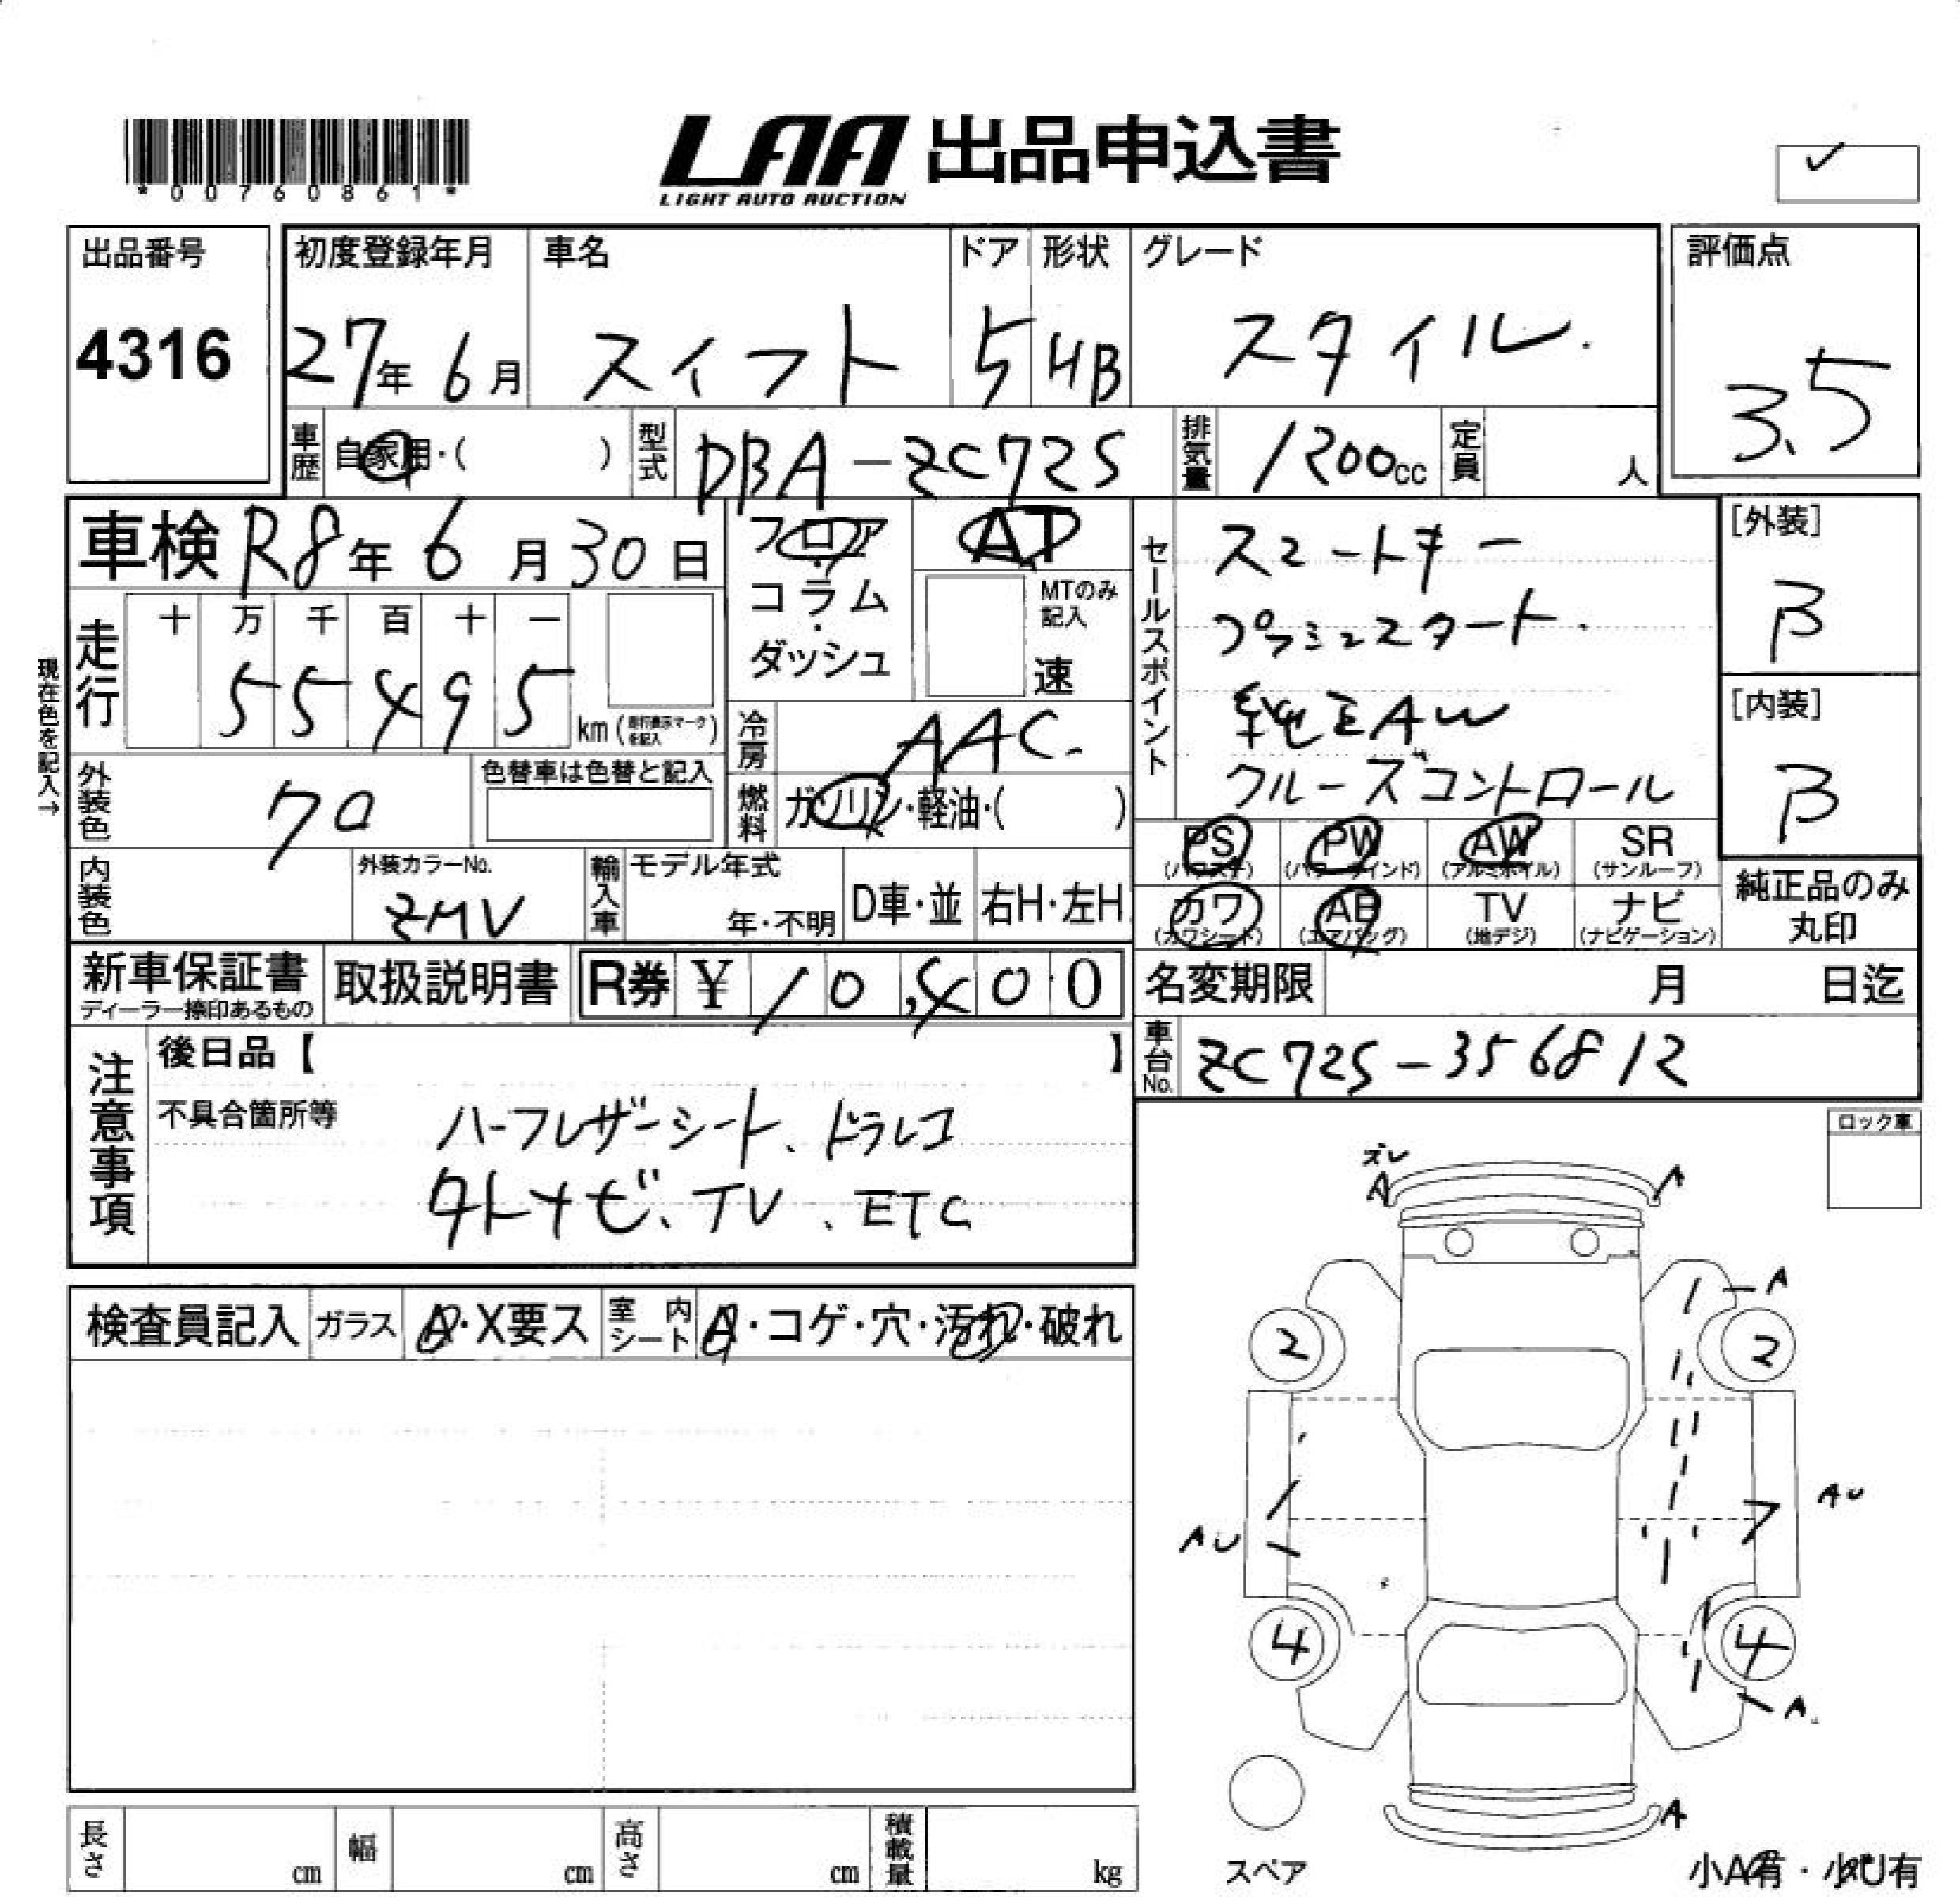 *00760861*
LAA 出品申込書
LIGHT AUTO AUCTION
✓
出品番号
4316
初度登録年月
27年 6月
車名
スイフト
ドア
5
形状
HB
グレード
スタイル.
評価点
3.5
車歴 自家用・( )
型式 DBA-ZC72S
排気量 1200cc
定員 人
車検 R8年 6月30日
フロア・コラム・ダッシュ
AT
MTのみ記入
速
セールスポイント
スマートキー
プッシュスタート.
純正AW
クルーズコントロール
[外装]
B
[内装]
B
現在色を記入→
走行
十 万 千 百 十 一
5 5 4 9 5
km(走行表示マークを記入)
冷房 AAC.
燃料 ガソリン・軽油・( )
外装色 クロ
色替車は色替と記入
内装色
外装カラーNo.
ZMV
輸入車
モデル年式
年・不明
D車・並
右H・左H
PS
(パワステ)
PW
(パワーウインド)
AW
(アルミホイル)
SR
(サンルーフ)
カワ
(カワシート)
AB
(エアバッグ)
TV
(地デジ)
ナビ
(ナビゲーション)
純正品のみ
丸印
新車保証書
ディーラー捺印あるもの
取扱説明書
R券 ¥ 10,400
名変期限 月 日迄
車台No. ZC72S-356812
注意事項
後日品【 】
不具合箇所等
ハーフレザーシート、ドラレコ
外ナビ、TV、ETC
ロック車
検査員記入
ガラス A・X要ス
室内シート A・コゲ・穴・汚れ・破れ
ズレ
A
A
A
2
2
AU
AU
4
4
A
A
スペア
小A有・小U有
長さ cm
幅 cm
高さ cm
積載量 kg